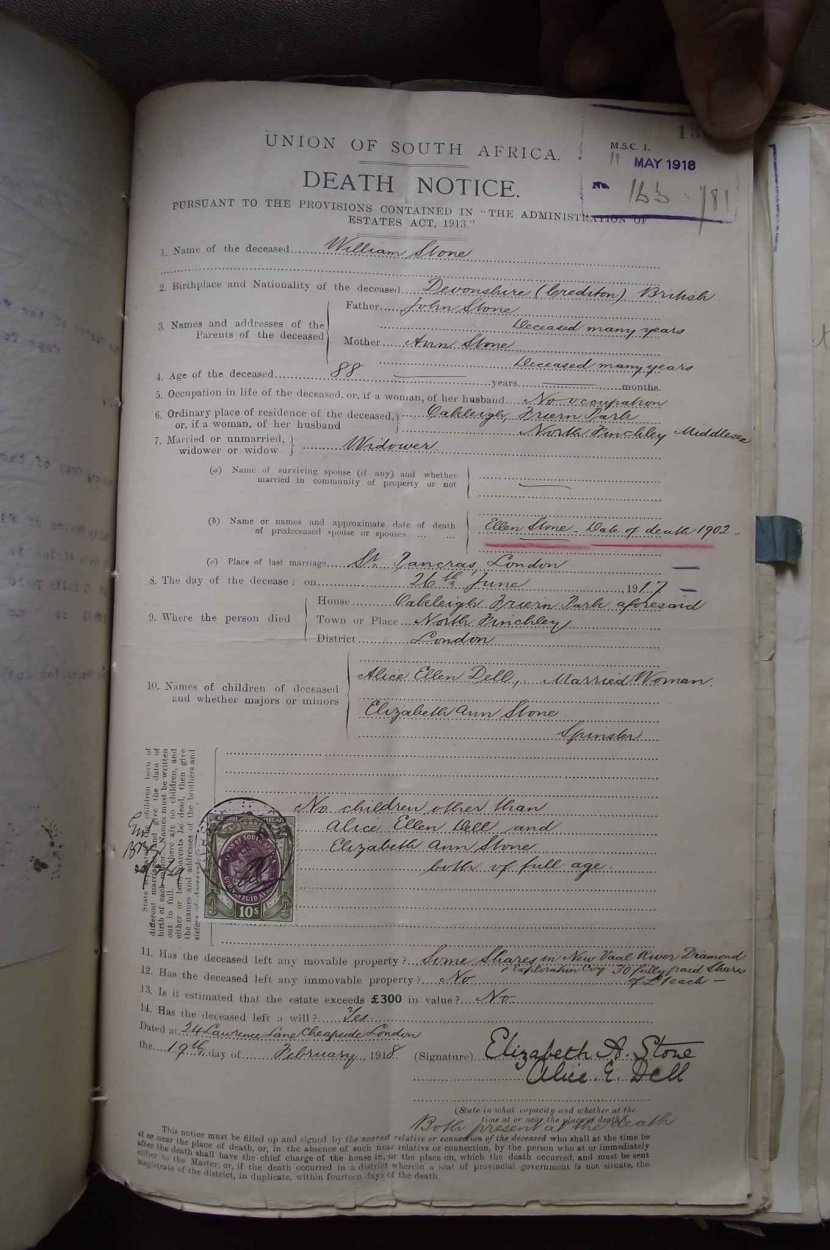 UNION OF SOUTH AFRICA.
M.S.C. 1.
11 MAY 1918
DEATH NOTICE.
PURSUANT TO THE PROVISIONS CONTAINED IN "THE ADMINISTRATION OF
ESTATES ACT, 1913."
1. Name of the deceased William Stone
2. Birthplace and Nationality of the deceased Devonshire (Crediton) British
3. Names and addresses of the Parents of the deceased
Father John Stone
Deceased many years
Mother Ann Stone
Deceased many years
4. Age of the deceased 88 years months.
5. Occupation in life of the deceased, or, if a woman, of her husband No occupation
6. Ordinary place of residence of the deceased, or, if a woman, of her husband
Oakleigh, Friern Park
North Finchley Middlesex
7. Married or unmarried, widower or widow Widower
(a) Name of surviving spouse (if any) and whether
married in community of property or not
(b) Name or names and approximate date of death
of predeceased spouse or spouses
Ellen Stone - Date of death 1902 -
(c) Place of last marriage St. Pancras, London
8. The day of the decease: on 26th June, 1917
9. Where the person died
House Oakleigh Friern Park aforesaid
Town or Place North Finchley
District London
10. Names of children of deceased
and whether majors or minors
Alice Ellen Dell, Married Woman
Elizabeth Ann Stone
Spinster
No children other than
Alice Ellen Dell and
Elizabeth Ann Stone
both of full age.
10s
11. Has the deceased left any movable property? Some Shares in New Vaal River Diamond
& Exploration Coy 30 fully paid Shares
of £1 each -
12. Has the deceased left any immovable property? No
13. Is it estimated that the estate exceeds £300 in value? No
14. Has the deceased left a will? Yes
Dated at 24 Lawrence Lane Cheapside London
the 19th day of February, 1918.
(Signature) Elizabeth A. Stone
Alice. E. Dell
(State in what capacity and whether at the
time at or near the place of death)
Both present at the death
This notice must be filled up and signed by the nearest relative or connection of the deceased who shall at the time be
at or near the place of death, or, in the absence of such near relative or connection, by the person who at or immediately
after the death shall have the chief charge of the house in, or the place on, which the death occurred, and must be sent
either to the Master, or, if the death occurred in a district wherein a seat of provincial government is not situate, the
magistrate of the district, in duplicate, within fourteen days of the death.